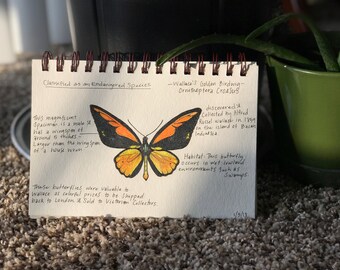 Classified as an Endangered Species
Wallace's Golden Birdwing
Ornithoptera Croesus
This magnificent
specimen is a male &
has a wingspan of
around 6 inches -
Larger than the wingspan
of a
discovered &
collected by Alfred
Russel Wallace in 1859
on the island of Bacan
Indonesia
Habitat: This butterfly
occurs in wet lowland
environments such as
swamps
These butterflies were valuable to
Wallace as colorful prizes to be shipped
back to London & sold to Victorian collectors.